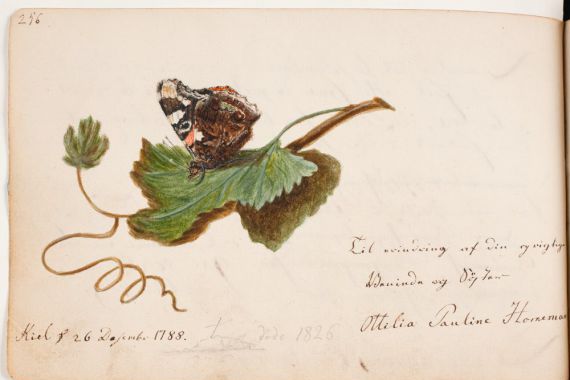 256
Til erindring af din oprigtige
Veninde og Søster
Ottilia Pauline Hornema
Kiel d 26 Decembr 1788.
döde 1826